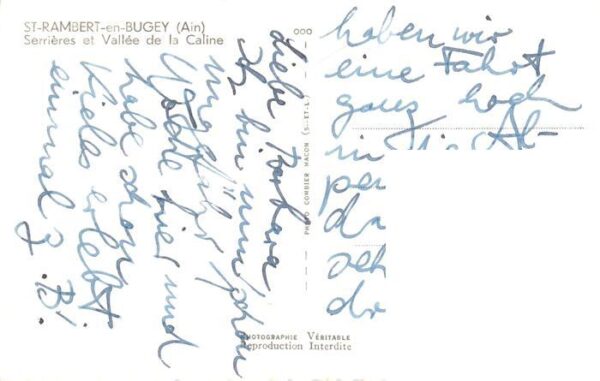 ST-RAMBERT-en-BUGEY (Ain)
Serrières et Vallée de la Caline
liebe Barbara
Ich bin nun schon
ungefähr 1
Woche hier und
habe schon
vieles erlebt
einmal z. B.
haben wir
eine Fahrt
ganz hoch
in die Al-
pe
da
seh
dr
PHOTO COMBIER MACON (S.-ET-L.)
PHOTOGRAPHIE VÉRITABLE
Reproduction Interdite